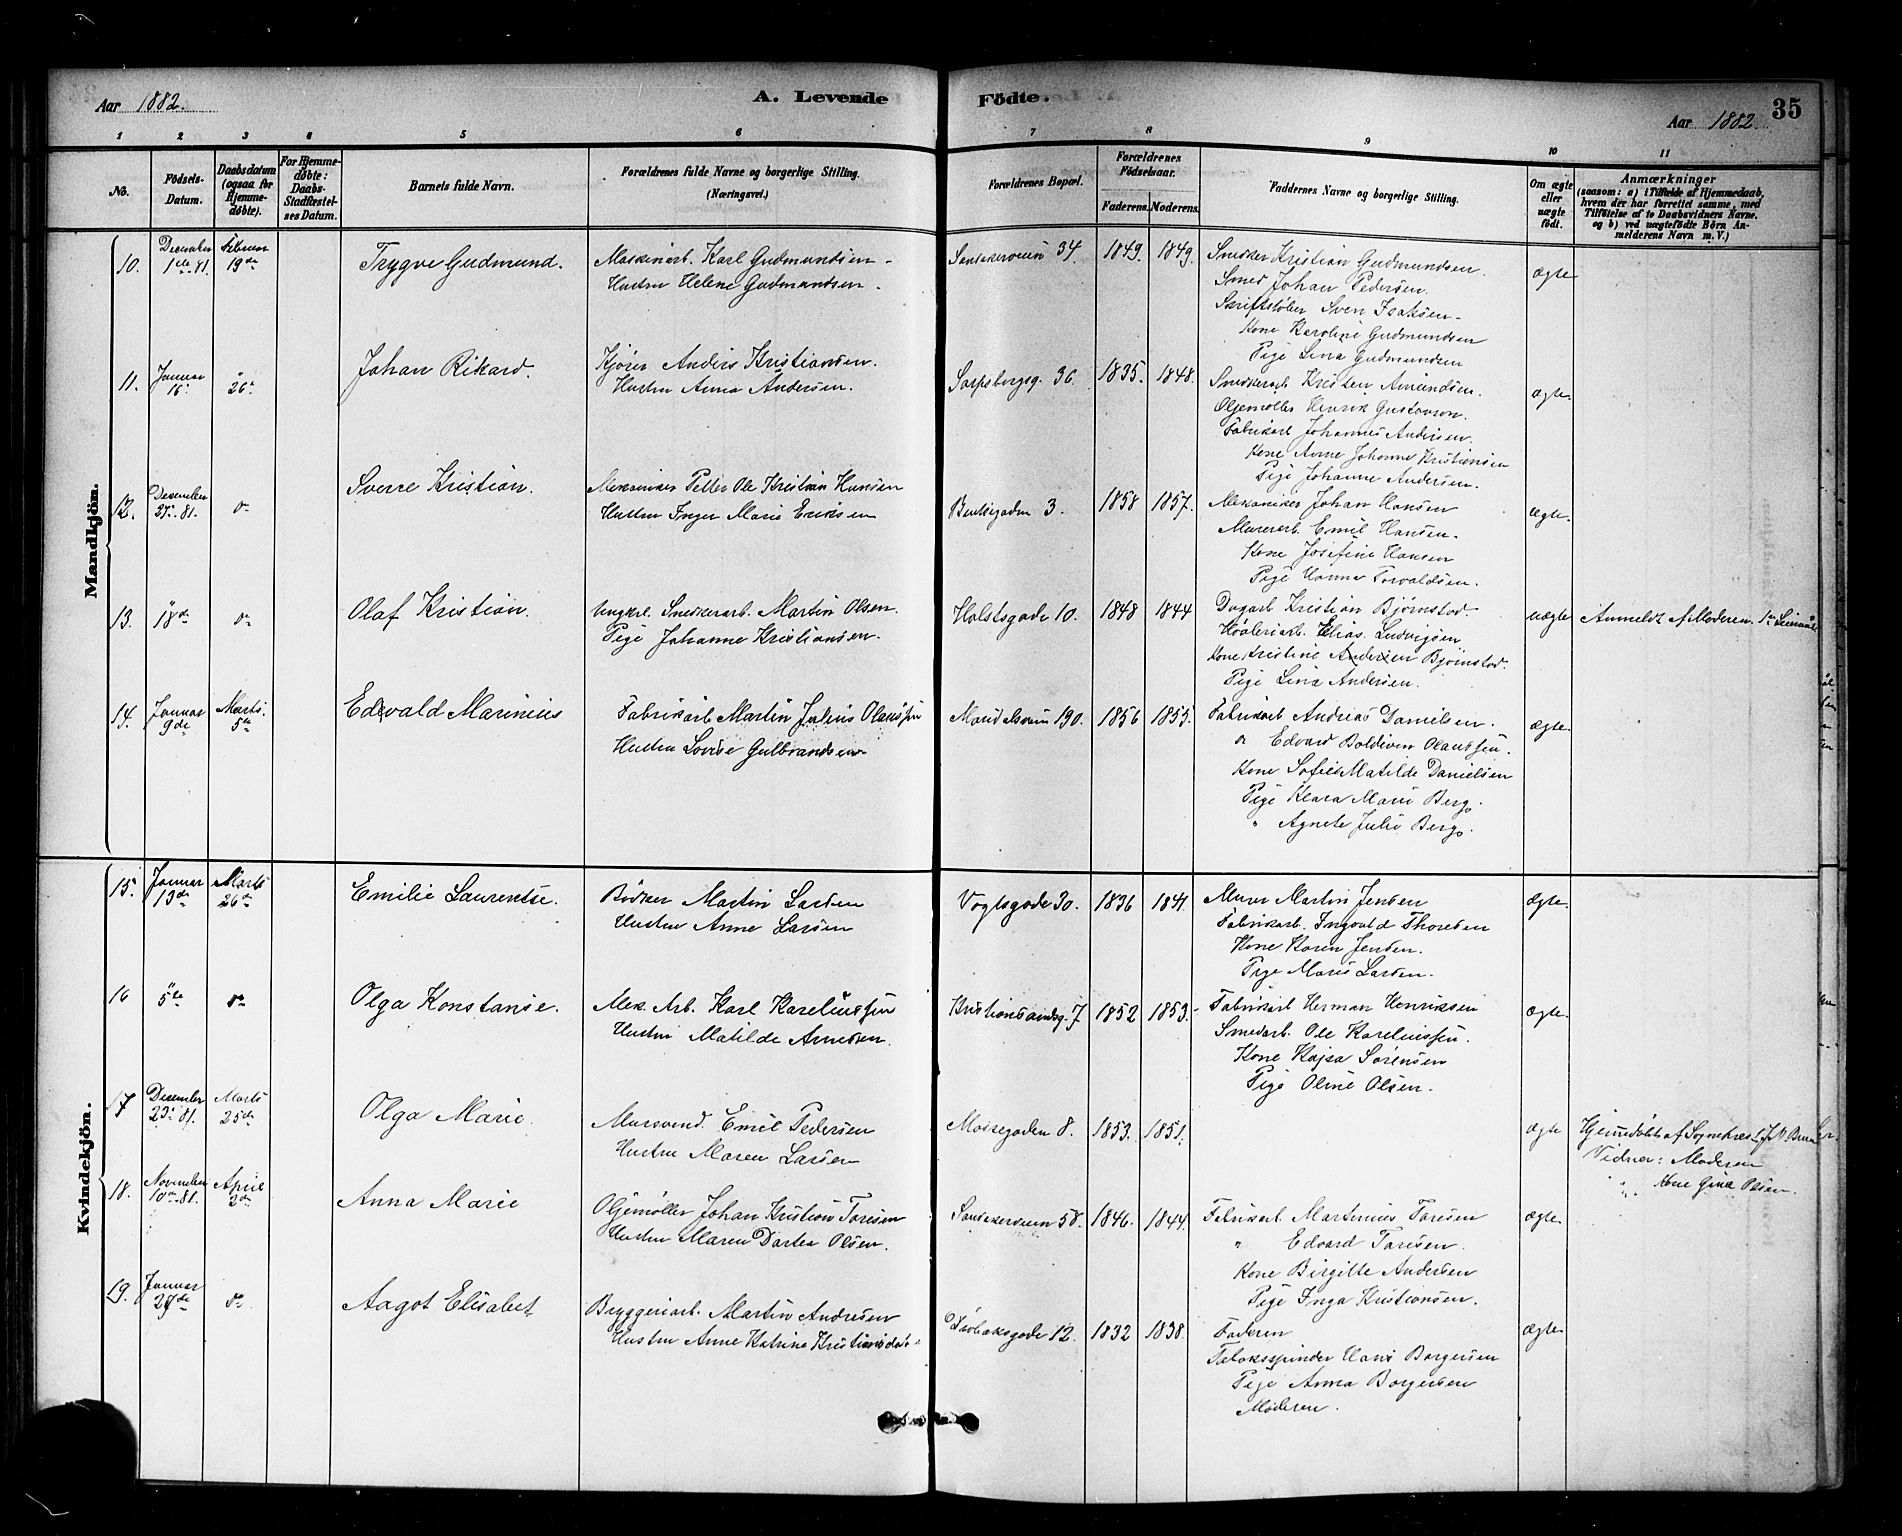 Aar 1882. A. Levende Födte. Aar 1882. 35
1 2 3 4 5 6 7 8 9 10 11
No.
Födsels-Datum.
Daabsdatum (ogsaa for Hjemme-døbte).
For Hjemme-døbte: Daabs-Stadfæstel-ses Datum.
Barnets fulde Navn.
Forældrenes fulde Navne og borgerlige Stilling. (Næringsvei.)
Forældrenes Bopæl.
Forældrenes Födselsaar.
Faderens. Moderens.
Faddernes Navne og borgerlige Stilling.
Om ægte eller uægte født.
Anmærkninger
(saasom: a) i Tilfælde af Hjemmedaab,
hvem der har forrettet samme, med
Tilföielse af to Daabsvidners Navne.
og b) ved uægtefödte Börn An-
melderens Navn m. V.)
Mandkjön.
10. December 1ste 81. Februar 19de Trygve Gudmund. Maskinarb. Karl Gudmundsen - 34. 1849. 1849. Snedker Kristian Gudmundsen. ægte
Hustru Helene Gudmundsen. Smed Johan Pedersen.
Skriftstøber Sven Isaksen -
Kone Karoline Gudmundsen
Pige Lina Gudmundsen
11. Januar 16. " 26. Johan Rikard. Kjører Anders Kristiansen. Sarpsborgsg. 36. 1835. 1848. Snedkerarb. Kristen Amundsen. ægte.
Hustru Anna Andersen. Oljemøller Henrik Gustavson.
Fabrikarb. Johannes Andersen.
Kone Anne Johanne Kristiansen
Pige Johanne Andersen.
12. December 27. 81. do Sverre Kristian. Mekaniker Petter Ole Kristian Hansen Bentsegaden 3. 1858 1857. Mekaniker Johan Hansen ægte.
Hustru Inger Marie Eriksen Murerarb. Emil Hansen.
Kone Josefine Hansen
Pige Hanna Torvaldsen.
13. " 18de do Olaf Kristian. Ungkrl. Snedkerarb. Martin Olsen. Holstsgade 10. 1848 1844 Dagarb. Kristian Bjørnstad. uægte Anmeldt af Moderen.
Pige Johanne Kristiansen. Elias Ludvigsen
Kone Kristine Andersen Bjørnstad.
Pige Lina Andersen.
14. Januar 9de Marts. 5te Edvald Marinius Fabrikarb. Martin Julius Olaussen Maridalsveien 190. 1856 1855. Fabrikarb. Andreas Danielsen. ægte.
Hustru Lovise Gulbrandsen do Edvard Boldiven Olaussen.
Kone Sofie Matilde Danielsen
Pige Klara Marie Berg.
" Agnete Julie Berg.
Kvindekjön.
15. Januar 13de Marts 26de Emilie Laurentse. Bødker Martin Larsen Vogtsgade 30. 1836 1841. Murer Martin Jensen ægte.
Hustru Anne Larsen Fabrikarb. Ingvald Thoresen
Kone Karen Jensen.
Pige Marie Larsen.
16 " 5te do Olga Konstanse. Mek. Arb. Karl Kareliussen Kristiansandsg. 7 1852 1853. Fabrikarb. Herman Henriksen ægte.
Hustru Matilde Arnesen. Smedarb. Ole Kareliussen.
Kone Kajsa Sørensen
Pige Oline Olsen.
17 December 23. 81. Marts 25de Olga Marie. Mursvend. Emil Pedersen 8. 1853. 1851. ægte Hjemmedøbt af Sognepræst
Hustru Maren Larsen Vidner: Moderen
" Kone Gina Olsen.
18. November 10de 81. April 2de Anna Marie Oljemøller Johan Kristian Toresen 58. 1846. 1844. Fabrikarb. Martinius Toresen ægte.
Hustru Maren Dortea Olsen. " Edvard Toresen.
Kone Birgitte Andersen
Pige Inga Kristiansen.
19. Januar 27de do Aagot Elisabet Bryggeriarb. Martin Andresen 12. 1832 1838. Faderen ægte.
Hustru Anne Katrine Kristiansdat. Tobaksspinder Hans Borgersen
Pige Anna Borgersen
Moderen.